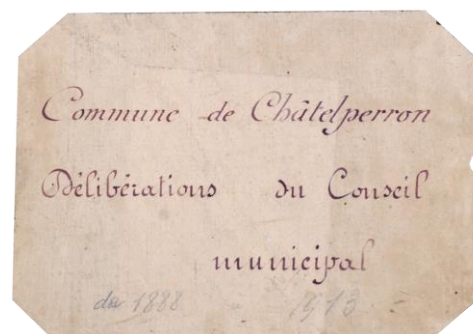 Commune de Châtelperron
Délibérations du Conseil
municipal
de 1888 - 1913 -